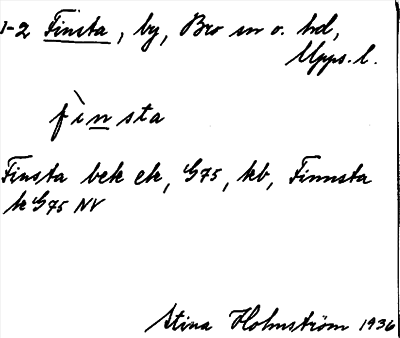 1-2 Finsta, by, Bro sn o. hd,
Upps. l.
fìnsta
Finsta bek ek, G75, kb, Finnsta
k G75 NV
Stina Holmström 1936